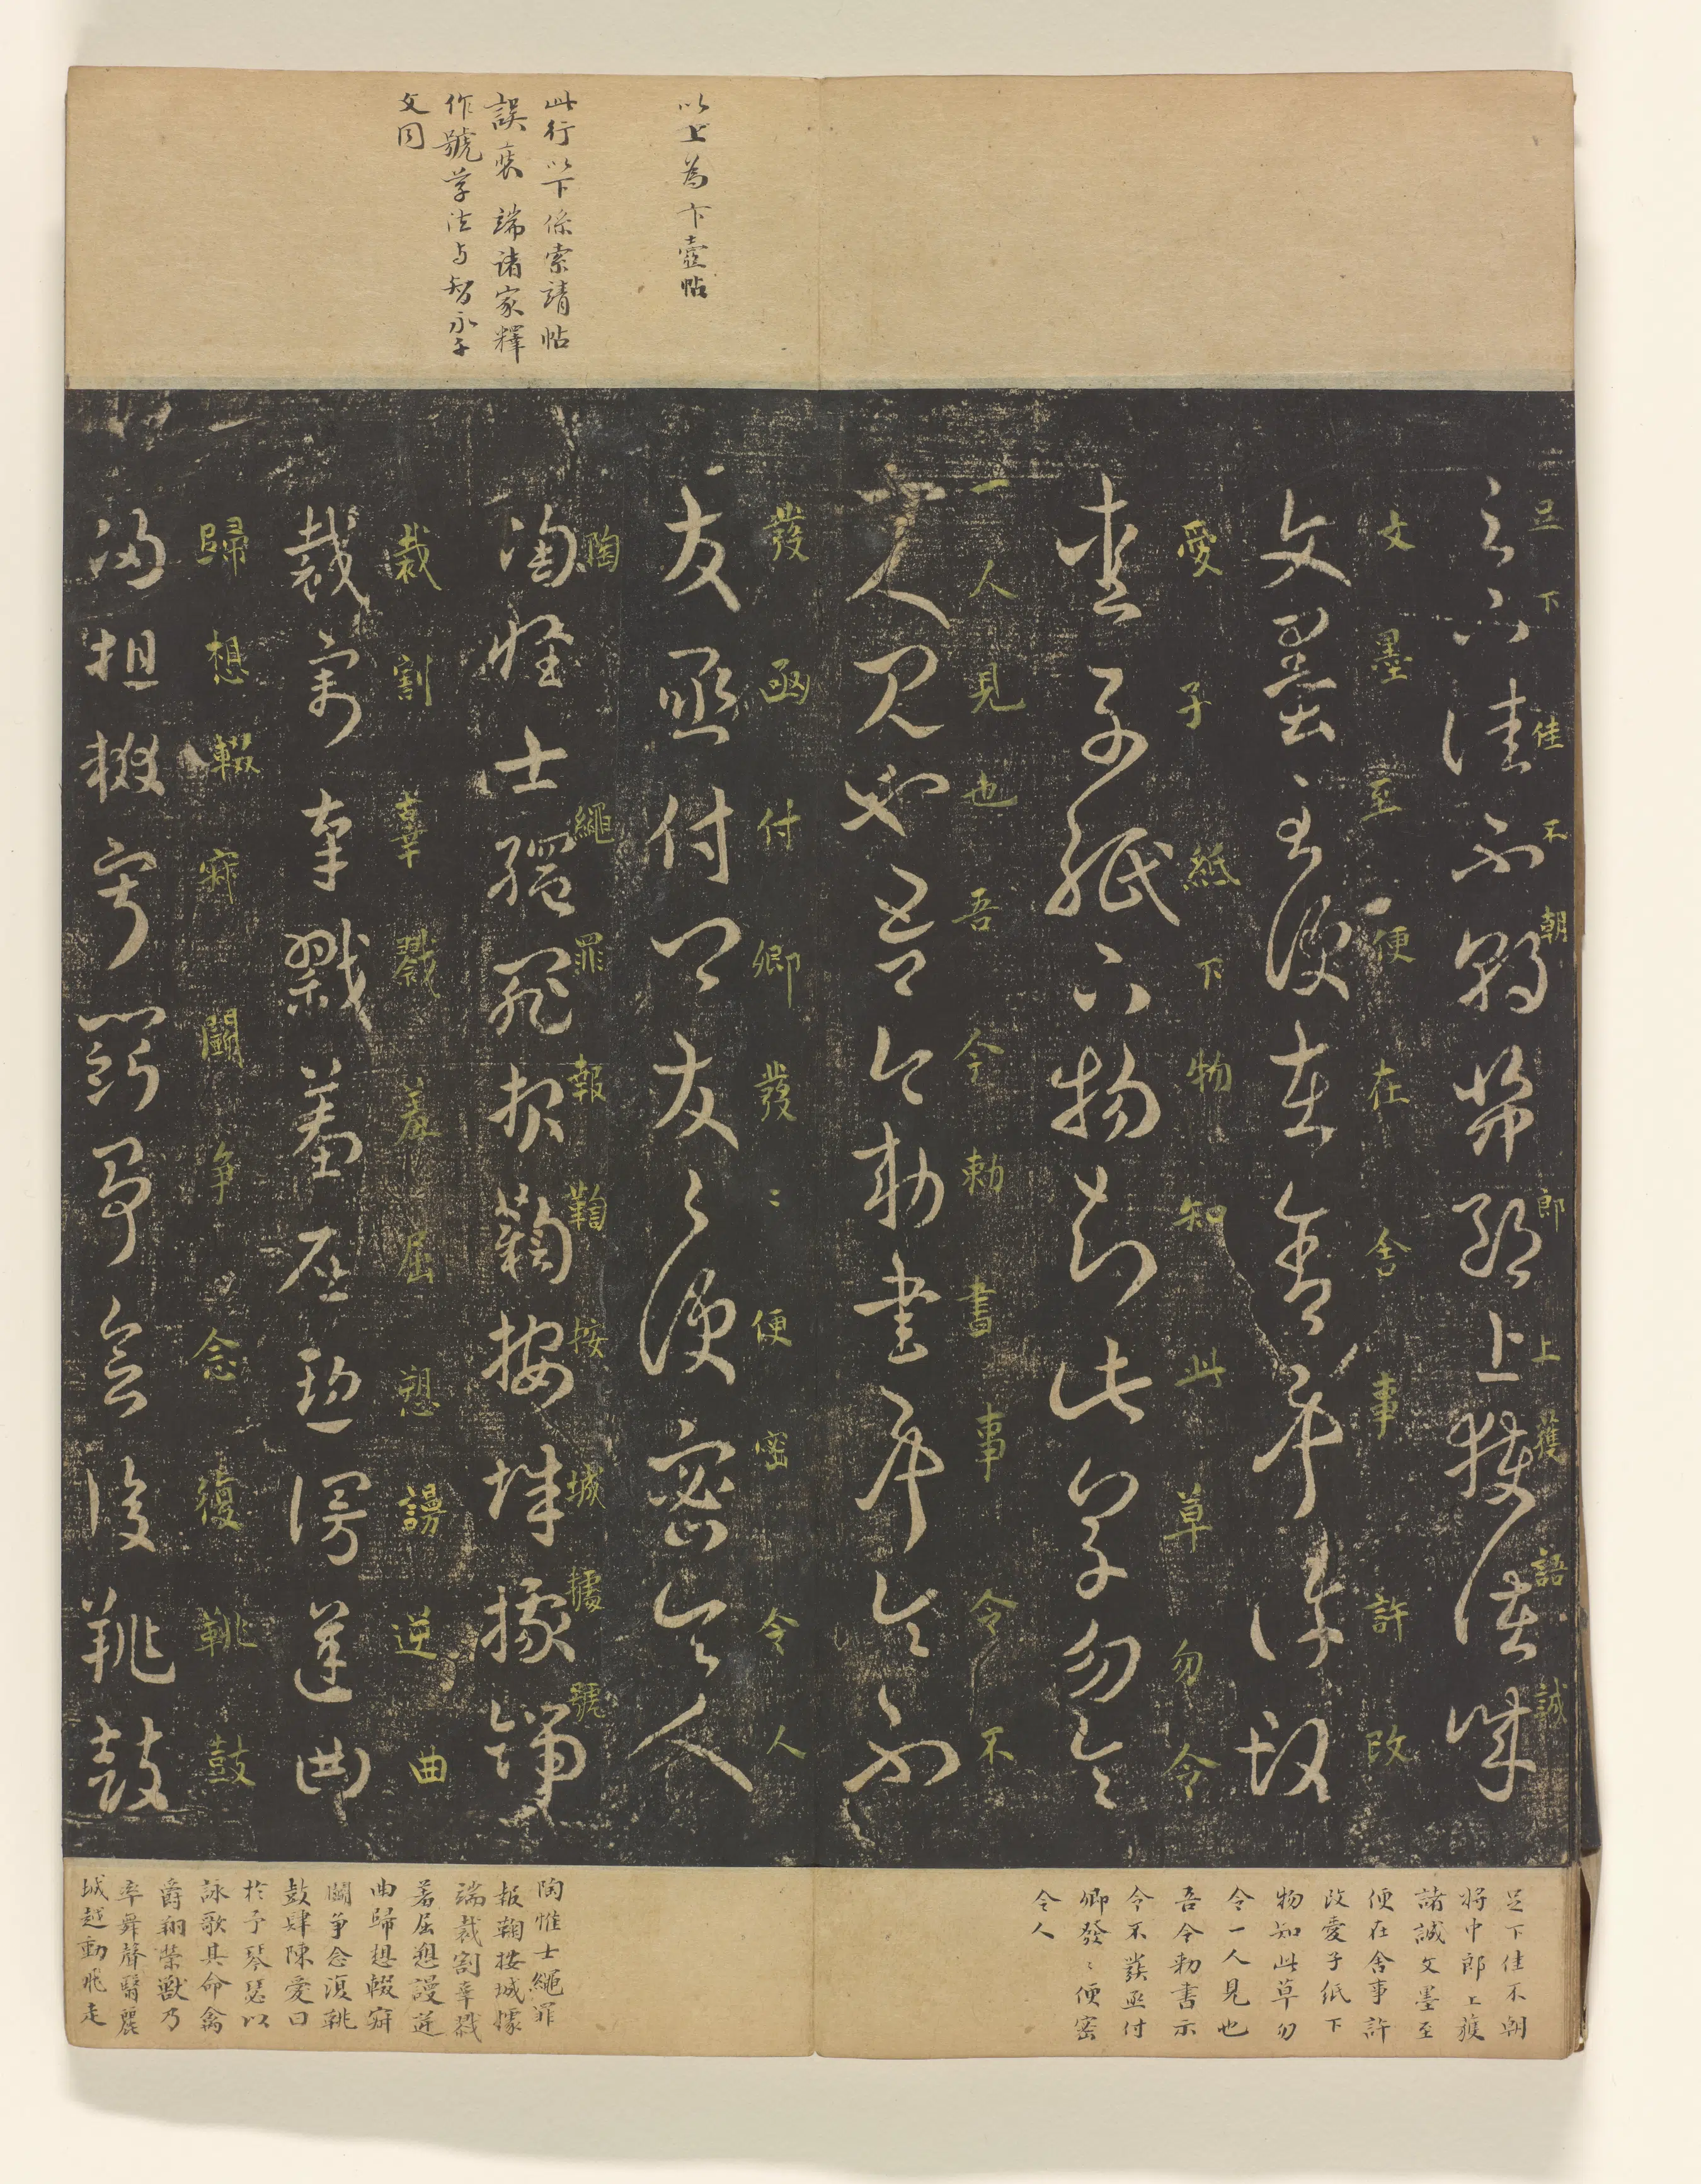 以上為卞壼帖
此行以下係索靖帖
誤裝 端諸家釋
作號草法与智永千
文同
足下佳不朝 郎上獲語誠
文墨至便在舍事許改
愛子紙下物知此草勿令
一人見也吾今勅書事令不
發函付卿發〻便密令人
陶 繩罪報鞫按城據號
裁割辜戮羞屈愬謾逆曲
歸想輟 鬪争念復鞉鼓
足下佳不朝
将中郎上獲
諸誠文墨至
便在舍事許
改愛子紙下
物知此草勿
令一人見也
吾今勅書示
令不發函付
卿發〻便密
令人
陶惟士繩罪
報鞫按城據
端裁割辜戮
羞屈愬謾逆
曲歸想輟
鬪争念復鞉
鼓肆陳愛曰
於予琴瑟以
詠歌其命禽
爵翔榮獸乃
率舞聲翳麗
城越動飛走